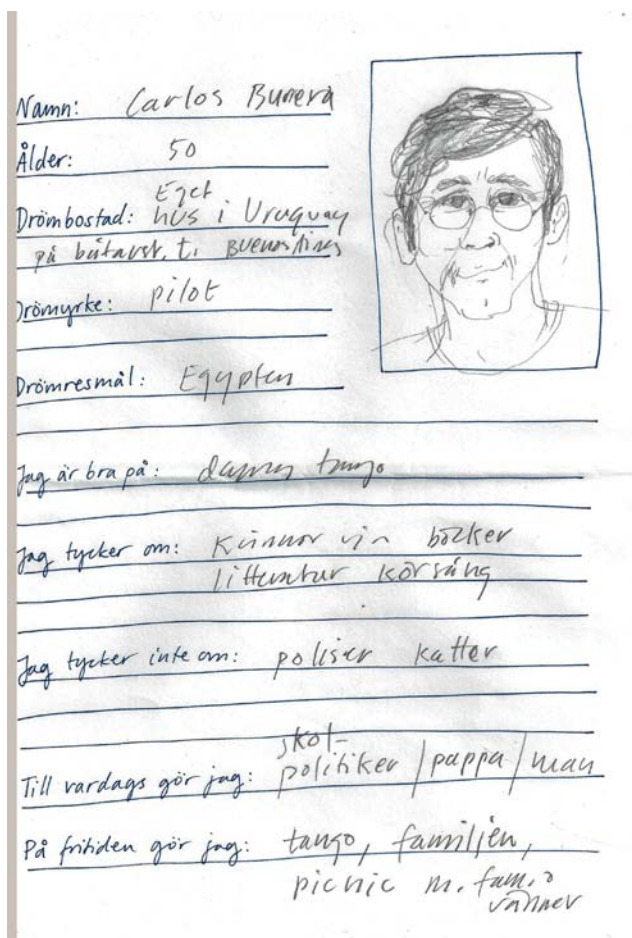 Namn: Carlos Bunera
Ålder: 50
Eget
Drömbostad: hus i Uruguay
på båtavst. t. Buenos Aires
Drömyrke: pilot
Drömresmål: Egypten
Jag är bra på: dansa tango
Jag tycker om: Kvinnor vin böcker
litteratur körsång
Jag tycker inte om: poliser katter
skol-
Till vardags gör jag: politiker / pappa / man
På fritiden gör jag: tango, familjen,
picnic m. fam. o
vänner